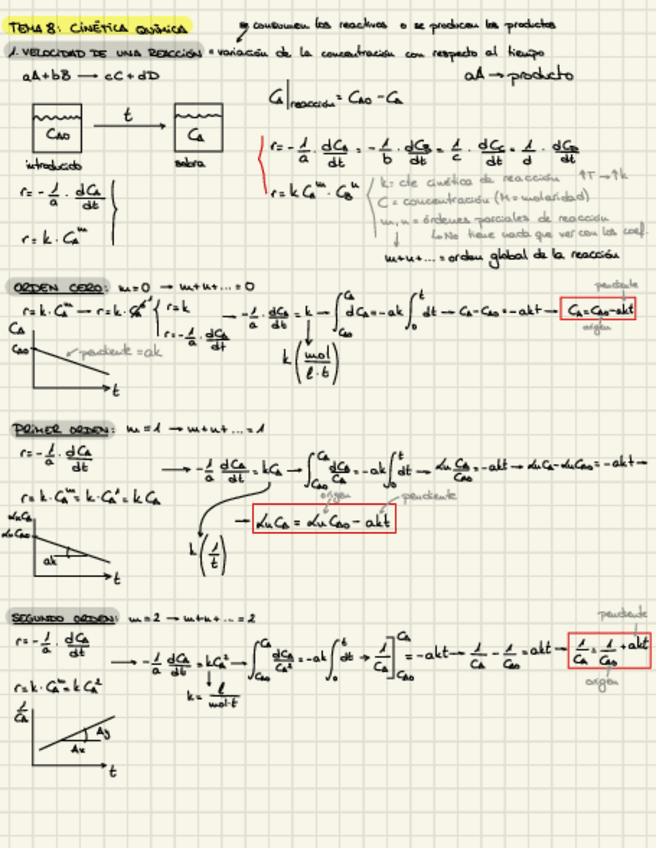 TEMA 8: CINÉTICA QUÍMICA
se consumen los reactivos o se producen los productos
1. VELOCIDAD DE UNA REACCIÓN = variación de la concentración con respecto al tiempo
aA + bB → cC + dD
aA → producto
C_A|reacción = C_A0 - C_A
C_A0 t C_A
introducido sobra
r = -1/a · dC_A/dt = -1/b · dC_B/dt = 1/c · dC_C/dt = 1/d · dC_D/dt
r = k C_A^m · C_B^n
k = cte cinética de reacción ↑T → ↑k
C = concentración (M = molaridad)
m, n = órdenes parciales de reacción
↳ No tiene nada que ver con los coef.
m+n+... = orden global de la reacción
r = -1/a · dC_A/dt
r = k · C_A^m
ORDEN CERO: m=0 → m+n+... = 0
r = k · C_A^m → r = k · C_A^0 { r = k
r = -1/a · dC_A/dt
→ -1/a · dC_A/dt = k → ∫_{C_A0}^{C_A} dC_A = -ak ∫_0^t dt → C_A - C_A0 = -akt → C_A = C_A0 - akt
pendiente
origen
k (mol/l·t)
C_A
C_A0
pendiente = ak
t
PRIMER ORDEN: m=1 → m+n+... = 1
r = -1/a · dC_A/dt
→ -1/a dC_A/dt = kC_A → ∫_{C_A0}^{C_A} dC_A/C_A = -ak ∫_0^t dt → Ln C_A/C_A0 = -akt → LnC_A - LnC_A0 = -akt →
r = k · C_A^m = k · C_A^1 = k C_A
origen pendiente
→ Ln C_A = Ln C_A0 - akt
k (1/t)
LnC_A
LnC_A0
ak
t
SEGUNDO ORDEN: m=2 → m+n+... = 2
r = -1/a · dC_A/dt
→ -1/a dC_A/dt = kC_A^2 → ∫_{C_A0}^{C_A} dC_A/C_A^2 = -ak ∫_0^t dt → 1/C_A ]_{C_A0}^{C_A} = -akt → 1/C_A - 1/C_A0 = akt → 1/C_A = 1/C_A0 + akt
pendiente
origen
r = k · C_A^m = k C_A^2
k = l/mol·t
1/C_A
Ay
Ax
t